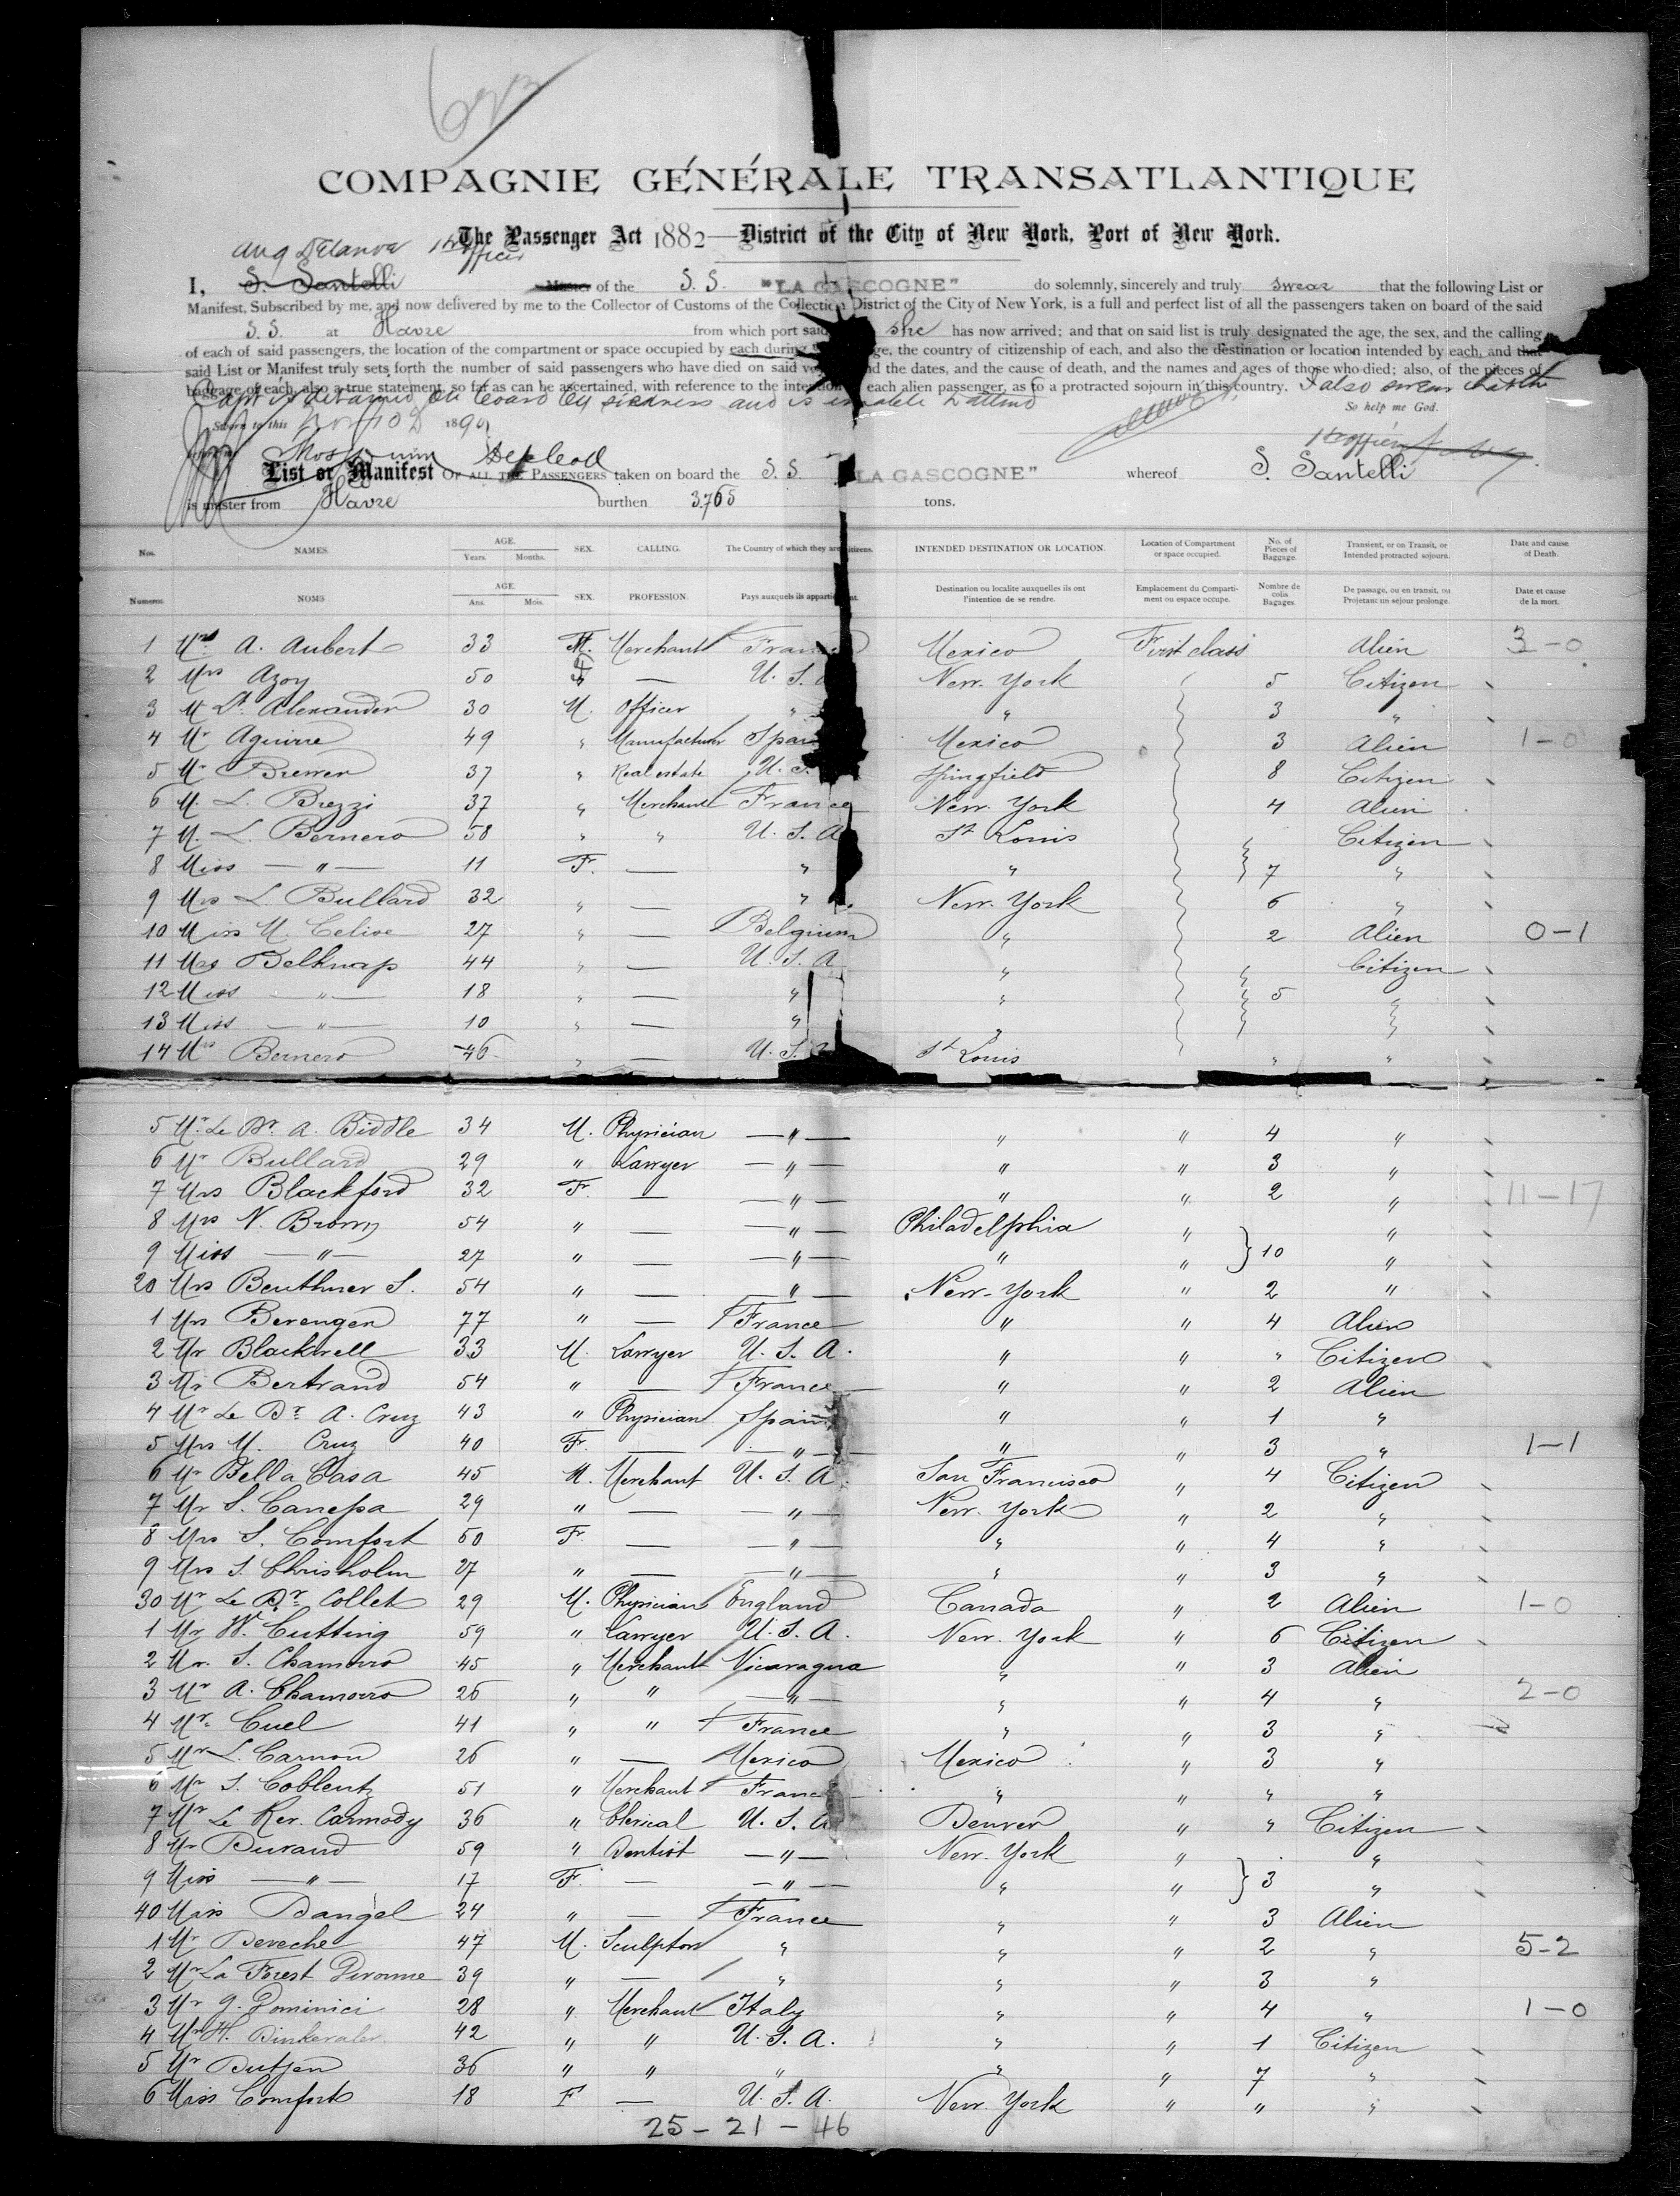 COMPAGNIE GÉNÉRALE TRANSATLANTIQUE
The Passenger Act 1882—District of the City of New York, Port of New York.
Officer
I, S. Santelli Master of the S. S. "LA GASCOGNE" do solemnly, sincerely and truly swear that the following List or
Manifest, Subscribed by me, and now delivered by me to the Collector of Customs of the Collection District of the City of New York, is a full and perfect list of all the passengers taken on board of the said
S. S. at Havre from which port said she has now arrived; and that on said list is truly designated the age, the sex, and the calling
of each of said passengers, the location of the compartment or space occupied by each during the ge, the country of citizenship of each, and also the destination or location intended by each, and that
said List or Manifest truly sets forth the number of said passengers who have died on said vo nd the dates, and the cause of death, and the names and ages of those who died; also, of the pieces of
baggage of each, also a true statement, so far as can be ascertained, with reference to the intention each alien passenger, as to a protracted sojourn in this country. I also swear that the
Capt is detained on board by sickness and is unable to attend
So help me God.
Sworn to this 1890
List or Manifest OF ALL THE PASSENGERS taken on board the S. S. LA GASCOGNE" whereof S. Santelli
is master from Havre burthen 3.765 tons.
Nos. NAMES. AGE. Years. Months. SEX. CALLING. The Country of which they are citizens. INTENDED DESTINATION OR LOCATION. Location of Compartment or space occupied. No. of Pieces of Baggage. Transient, or on Transit, or Intended protracted sojourn. Date and cause of Death.
Numeros NOMS AGE. Ans. Mois. SEX. PROFESSION. Pays auxquels ils appartiennent. Destination ou localite auxquelles ils ont l'intention de se rendre. Emplacement du Compartiment ou espace occupe. Nombre de colis Bagages. De passage, ou en transit, ou Projetant un sejour prolonge. Date et cause de la mort.
1 Mr A. Aubert 33 M. Merchant France Mexico First class Alien 3-0
2 Mrs Azoy 50 F — U. S. A New-York 5 Citizen
3 Mr Lt. Alexander 30 M. Officer " " 3 "
4 Mr Aguirre 49 " Manufacturer Spain Mexico 3 Alien 1-0
5 Mr Brewer 37 " Real estate U. S. Springfield 8 Citizen
6 M. L. Brezzi 37 " Merchant France New-York 4 Alien
7 M. L. Bernero 58 " " U. S. A St Louis Citizen
8 Miss —"— 11 Fe. — " " 7 "
9 Mrs L. Bullard 32 " — " New-York 6 "
10 Miss M. Celive 27 " — Belgium " 2 Alien 0-1
11 Mrs Belknap 44 " — U. S. A " Citizen
12 Miss —"— 18 " — " " 5 "
13 Miss —"— 10 " — " " "
14 Mrs Bernero 46 " — U. S. A St Louis " "
5 Mr Le Dr. A. Biddle 34 M. Physician —"— " " 4 "
6 Mr Bullard 29 " Lawyer —"— " " 3 "
7 Mrs Blackford 32 Fe. — —"— " " 2 " 11-17
8 Mrs N. Brown 54 " — —"— Philadelphia " "
9 Miss —"— 27 " — —"— " " 10 "
20 Mrs Beuthner S. 54 " — —"— New-York " 2 "
1 Mrs Berenger 77 " — France " " 4 Alien
2 Mr Blackwell 33 M. Lawyer U. S. A. " " " Citizen
3 Mr Bertrand 54 " — France " " 2 Alien
4 Mr Le Dr. A. Cruz 43 " Physician Spain " " 1 "
5 Mrs M. Cruz 40 Fe. — —"— " " 3 " 1-1
6 Mr Bella Casa 45 M. Merchant U. S. A. San Francisco " 4 Citizen
7 Mr S. Canessa 29 " — —"— New-York " 2 "
8 Mrs S. Comfort 50 Fe. — —"— " " 4 "
9 Mrs S. Chrisholm 27 " — —"— " " 3 "
30 Mr Le Dr. Collet 29 M. Physician England Canada " 2 Alien 1-0
1 Mr W. Cutting 59 " Lawyer U. S. A. New-York " 6 Citizen
2 Mr. S. Chamorro 45 " Merchant Nicaragua " " 3 Alien
3 Mr A. Chamorro 26 " " —"— " " 4 " 2-0
4 Mr. Cuel 41 " " France " " 3 "
5 Mr L. Carnon 26 " — Mexico Mexico " 3 "
6 Mr S. Coblentz 51 " Merchant France " " " "
7 Mr Le Rev. Carmody 36 " Clerical U. S. A Denver " " Citizen
8 Mr Durand 59 " Dentist —"— New-York " "
9 Miss —"— 17 Fe. — —"— " " 3 "
40 Miss Dangel 24 " — France " " 3 Alien
1 Mr Dereche 47 M. Sculptor " " " 2 " 5-2
2 Mr La Forest Divonne 39 " — " " " 3 "
3 Mr G. Dominici 28 " Merchant Italy " " 4 " 1-0
4 Mr H. 42 " " U. S. A. " " 1 Citizen
5 Mr Dutjen 36 " " " " " 7 "
6 Miss Comfort 18 F — U. S. A. New York " " "
25-21-46